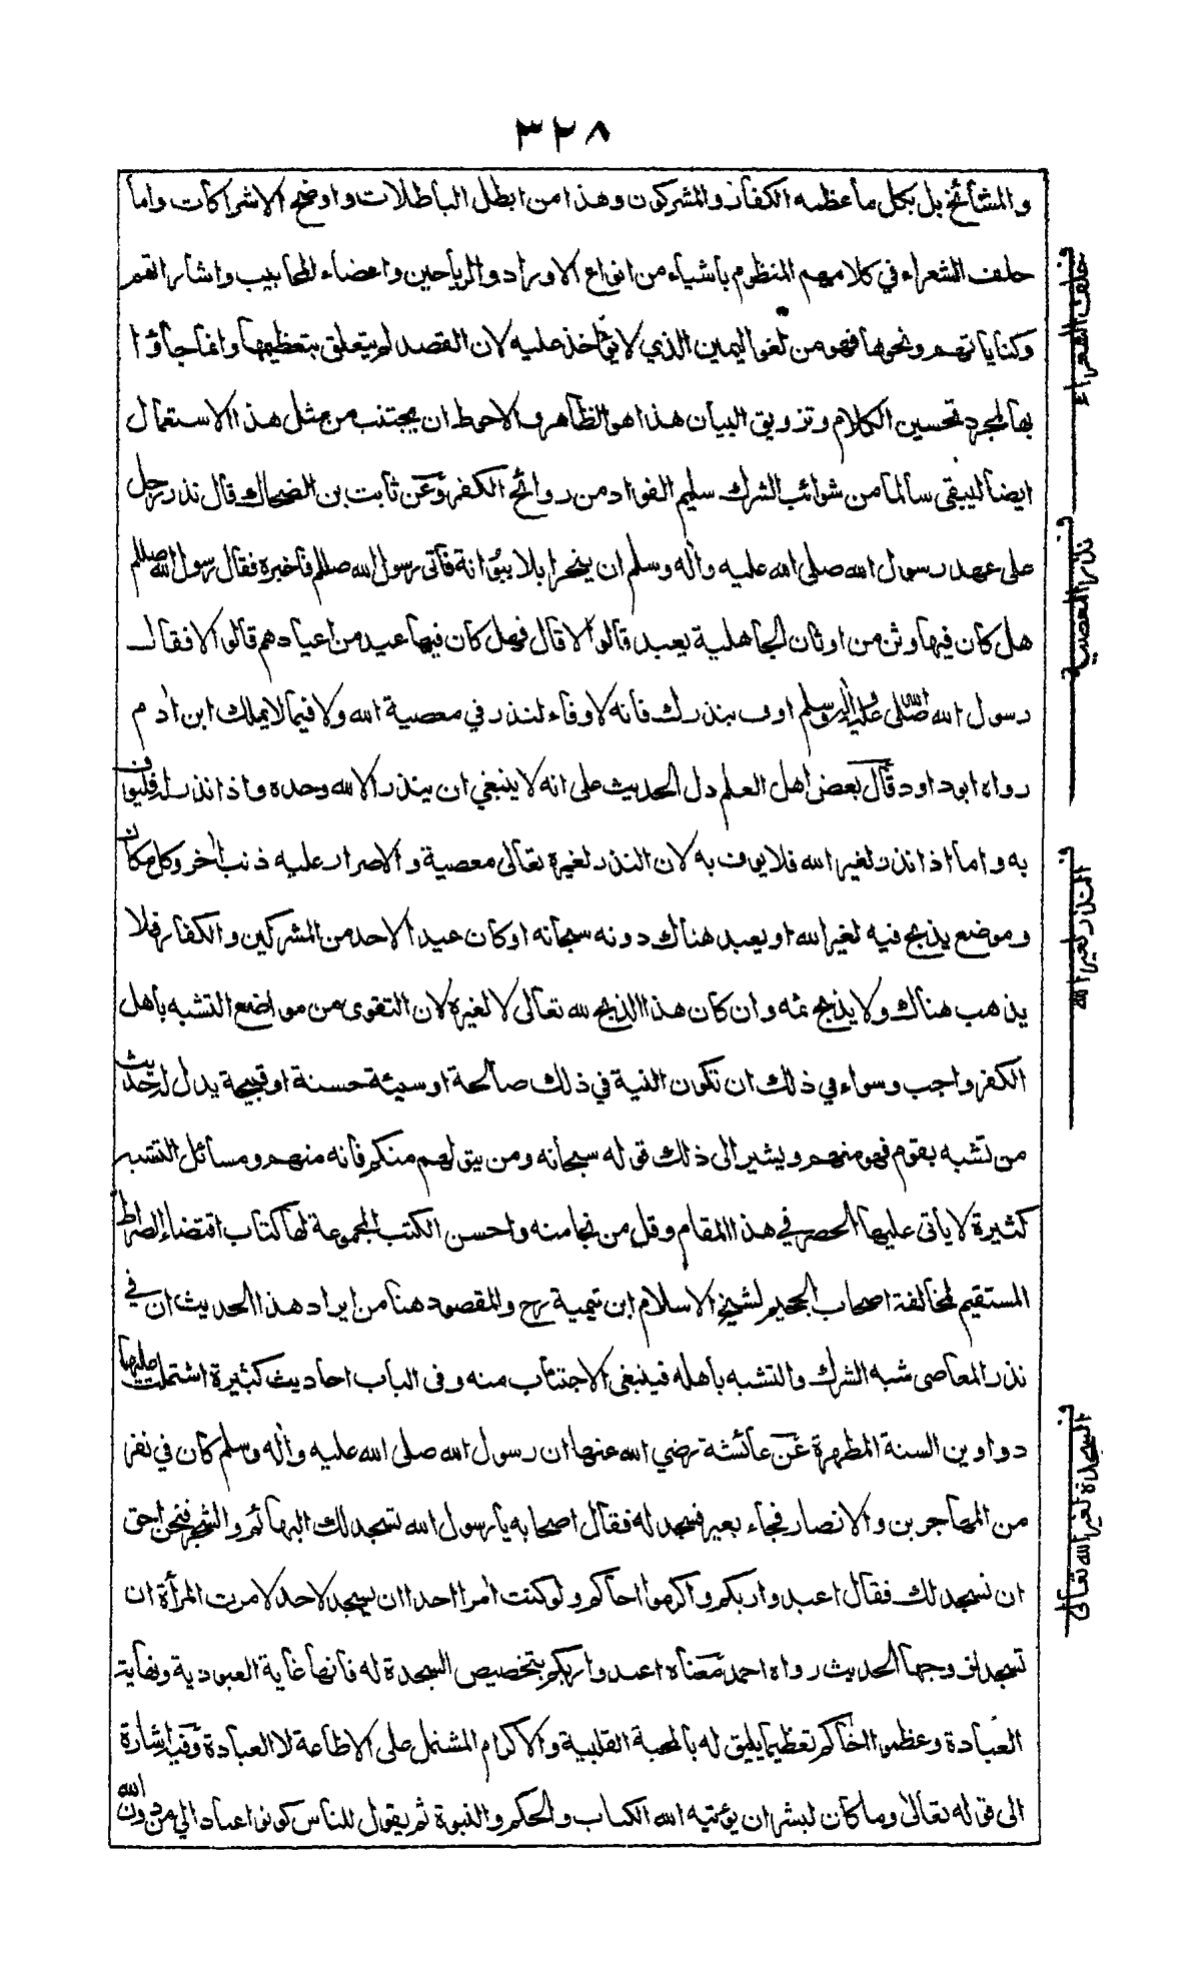 ٣٢٨
والمشائخ بل بكل ما عظمه الكفار والمشركون وهذا من ابطل الباطلات واوضح الاشراكات واما
حلف الشعراء في كلامهم المنظوم باشياء من انواع الاوراد والرياحين واعضاء المحابيب واشار القم
وكناياتهم ونحوها فهو من لغو اليمين الذي لا يؤاخذ عليه لان القصد لم يتعلق بتعظيمها وانما جاؤا
بها لمجرد تحسين الكلام وتزويق البيان هذا هو الظاهر والاحوط ان يجتنب من مثل هذا الاستعمال
ايضا ليبقى سالما من شوائب الشرك سليم الفواد من روائح الكفر وعن ثابت بن الضحاك قال نذر رجل
على عهد رسول الله صلى الله عليه وآله وسلم ان ينحر ابلا ببوانة فأتى رسول الله صللم فأخبره فقال رسول الله صللم
هل كان فيها وثن من اوثان الجاهلية يعبد قالوا لا قال فهل كان فيها عيد من اعيادهم قالوا لا فقال
رسول الله صلى الله عليه وآله وسلم اوف بنذرك فانه لا وفاء لنذر في معصية الله ولا فيما لا يملك ابن آدم
رواه ابو داود قال بعض اهل العلم دل الحديث على انه لا ينبغي ان ينذر الا لله وحده واذا نذر له فليوف
به واما اذا نذر لغير الله فلا يوف به لان النذر لغيره تعالى معصية والاصرار عليه ذنب آخر وكل مكان
وموضع يذبح فيه لغير الله او يعبد هناك دونه سبحانه او كان عيد الاحد من المشركين والكفار فلا
يذهب هناك ولا يذبح ثمه وان كان هذا الذبح لله تعالى لا لغيره لان التقوى من مواضع التشبه باهل
الكفر واجب وسواء في ذلك ان تكون النية في ذلك صالحة او سيئة حسنة او قبيحة يدل له حديث
من تشبه بقوم فهو منهم ويشير الى ذلك قوله سبحانه ومن يتولهم منكم فانه منهم ومسائل التشبه
كثيرة لا يأتى عليها الحصر في هذا المقام وقل من نجا منه واحسن الكتب المجموعة لها كتاب اقتضاء الصراط
المستقيم لمخالفة اصحاب الجحيم لشيخ الاسلام ابن تيمية رح والمقصود هنا من ايراد هذا الحديث ان في
نذر المعاصى شبه الشرك والتشبه باهله فينبغى الاجتناب منه وفى الباب احاديث كثيرة اشتملت عليها
دواوين السنة المطهرة عن عائشة رضي الله عنها ان رسول الله صلى الله عليه وآله وسلم كان في نفر
من المهاجرين والانصار فجاء بعير فسجد له فقال اصحابه يا رسول الله تسجد لك البهائم والشجر فنحن احق
ان نسجد لك فقال اعبدوا ربكم واكرموا اخاكم ولو كنت آمرا احدا ان يسجد لاحد لامرت المرأة ان
تسجد لزوجها الحديث رواه احمد معناه اعبدوا ربكم بتخصيص السجدة له فانها غاية العبودية ونهاية
العبادة وعظموا اخاكم تعظيما يليق له بالمحبة القلبية والاكرام المشتمل على الاطاعة لا العبادة وفيه اشارة
الى قوله تعالى وما كان لبشر ان يؤتيه الله الكتاب والحكم والنبوة ثم يقول للناس كونوا عبادا لي من دون الله
ف حلف الشعراء
ف نذر المعصية
ف النذر لغير الله
ف السجدة لغير الله تعالى